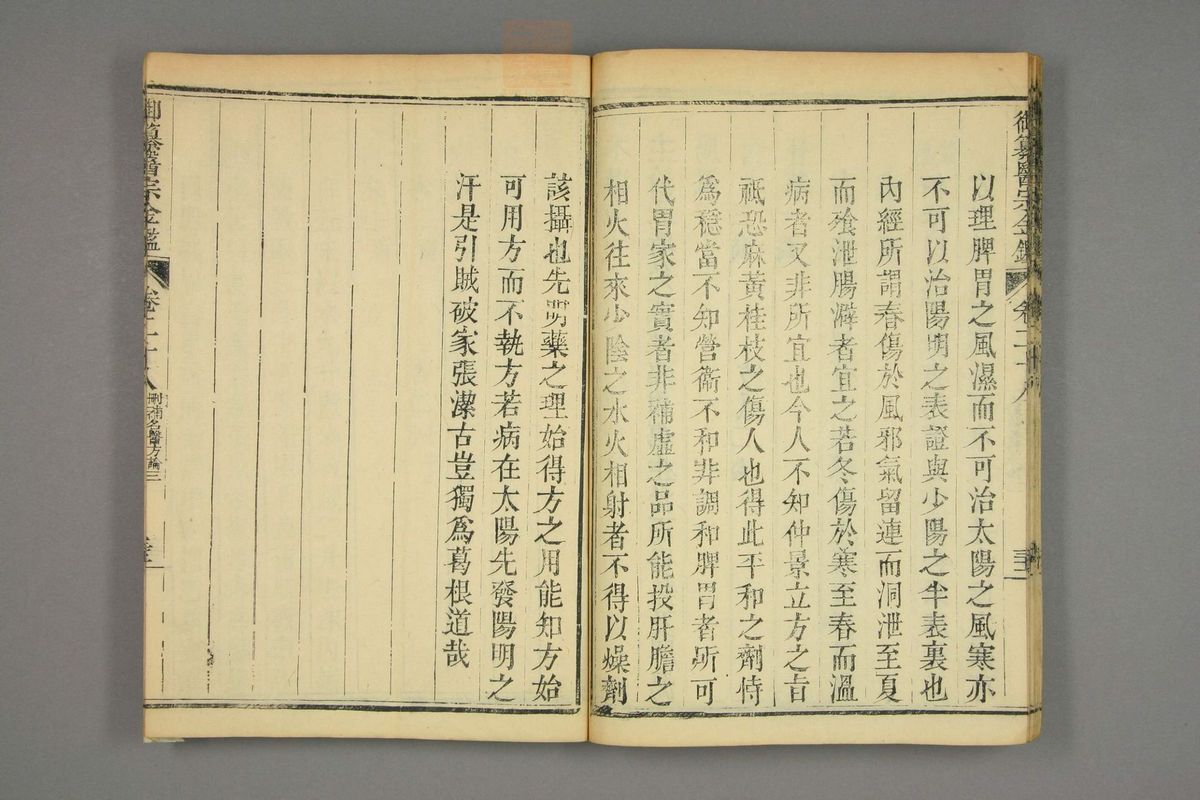 以理脾胃之風濕而不可治太陽之風寒亦
不可以治陽明之表證與少陽之半表裏也
內經所謂春傷於風邪氣留連而洞泄至夏
而飱泄腸澼者宜之若冬傷於寒至春而溫
病者又非所宜也今人不知仲景立方之旨
祗恐麻黃桂枝之傷人也得此平和之劑恃
爲穩當不知營衞不和非調和脾胃者所可
代胃家之實者非補虛之品所能投肝膽之
相火往來少陰之水火相射者不得以燥劑
該攝也先明藥之理始得方之用能知方始
可用方而不執方若病在太陽先發陽明之
汗是引賊破家張潔古豈獨爲葛根道哉
御纂醫宗金鑑
卷二十八
刪補名醫方論三